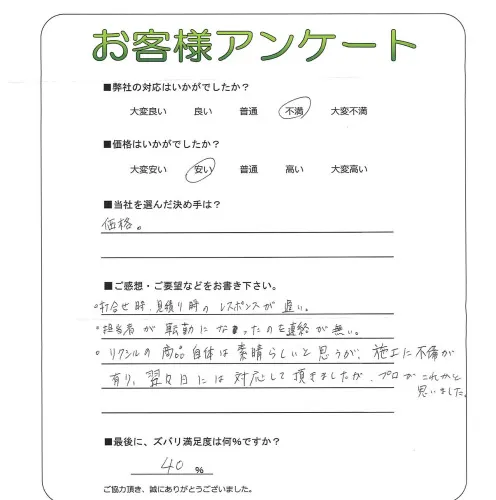 お客様アンケート
■弊社の対応はいかがでしたか？
大変良い 良い 普通 不満 大変不満
■価格はいかがでしたか？
大変安い 安い 普通 高い 大変高い
■当社を選んだ決め手は？
価格。
■ご感想・ご要望などをお書き下さい。
○打合せ時、見積り時の レスポンスが 遅い。
・担当者が 転勤になったのを連絡が無い。
○リクシルの商品自体は素晴らしいと思うが、施工に不備が
有り、翌々日には対応して頂きましたが、プロが これかと
思いました。
■最後に、ズバリ満足度は何%ですか？
40 %
ご協力頂き、誠にありがとうございました。